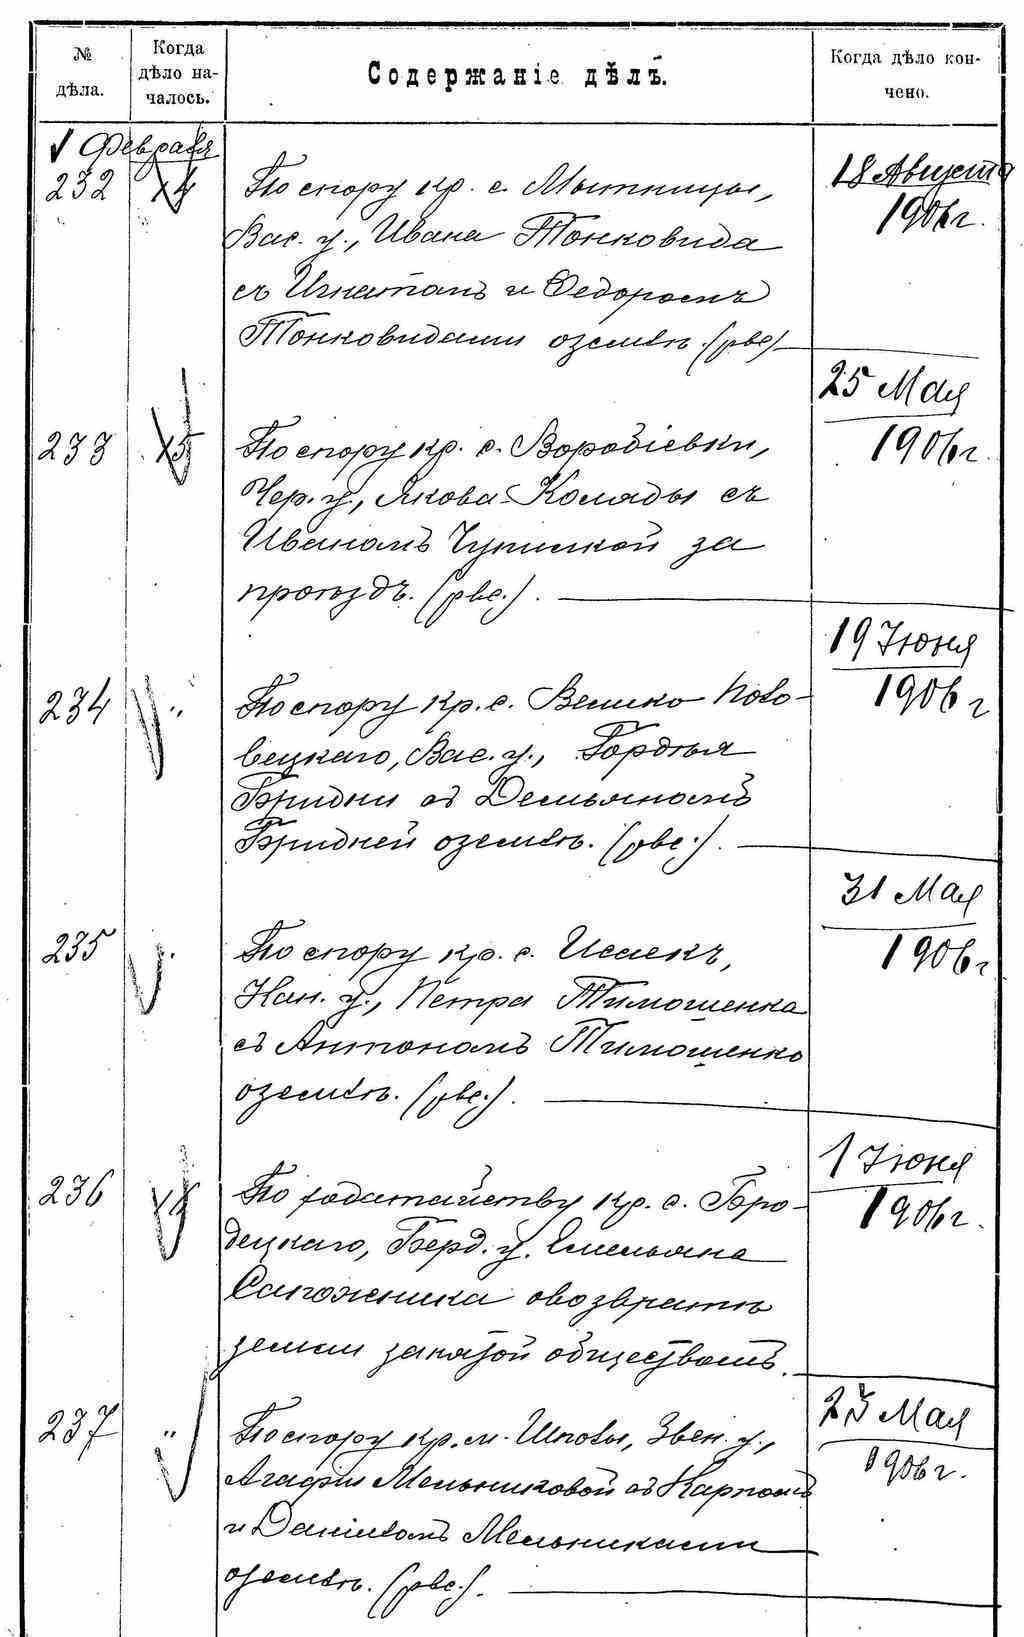 № дѣла.
Когда дѣло на-
чалось.
Содержаніе дѣлъ.
Когда дѣло кон-
чено.
Февраля
232 14 По спору кр. с. Мытницы, 18 Августа
Вас. у., Ивана Тонковида 1906 г.
съ Игнатомъ и Федоромъ
Тонковидами о землѣ. (рвс.)
25 Мая
233 15 По спору кр. с. Воробіевки, 1906 г.
Чер. у., Якова Коляды съ
Иваномъ за
проѣздъ. (рвс.).
19 Іюня
234 " По спору кр. с. Велико Поло- 1906 г
вецкаго, Вас. у., Гордѣя
Бридни съ Демьяномъ
Бридней о землѣ. (рвс.).
31 Мая
235 " По спору кр. с. Исаекъ, 1906 г
Кан. у., Петра Тимошенка
съ Антономъ Тимошенко
о землѣ. (рвс.).
1 Іюня
236 По ходатайству кр. с. Бро- 1906 г.
децкаго, Берд. у. Емельяна
Сапожника о возвратѣ
земли занятой обществомъ.
23 Мая
237 " По спору кр. м. Шполы, Звен. у., 1906 г.
Агафіи Мельниковой съ Карпомъ
и Даніиломъ Мельниками
о землѣ. (рвс.).